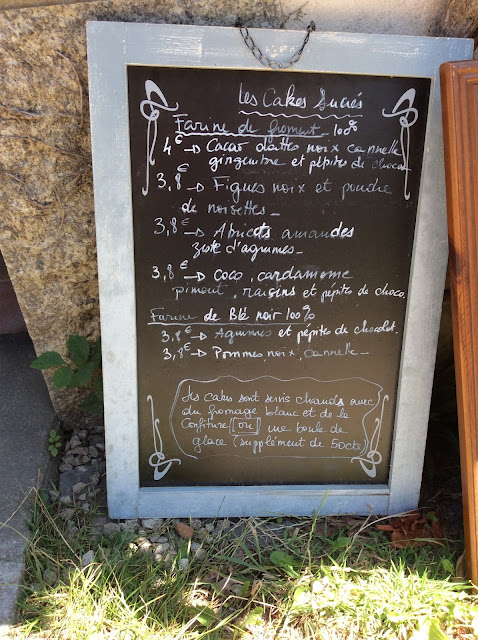 Les Cakes Sucrés
Farine de froment 100%
4€ → Cacao dattes noix cannelle
gingembre et pépites de choco
3,8€ → Figues noix et poudre
de noisettes_
3,8€ → Abricots amandes
zeste d'agrumes_
3,8€ → Coco, cardamome
piment, raisins et pépites de choco.
Farine de Blé noir 100%
3,8€ → Agrumes et pépites de chocolat.
3,8€ → Pommes, noix, cannelle_
Les cakes sont servis chauds avec
du fromage blanc et de la
confiture [ou] une boule de
glace (supplément de 50cts)